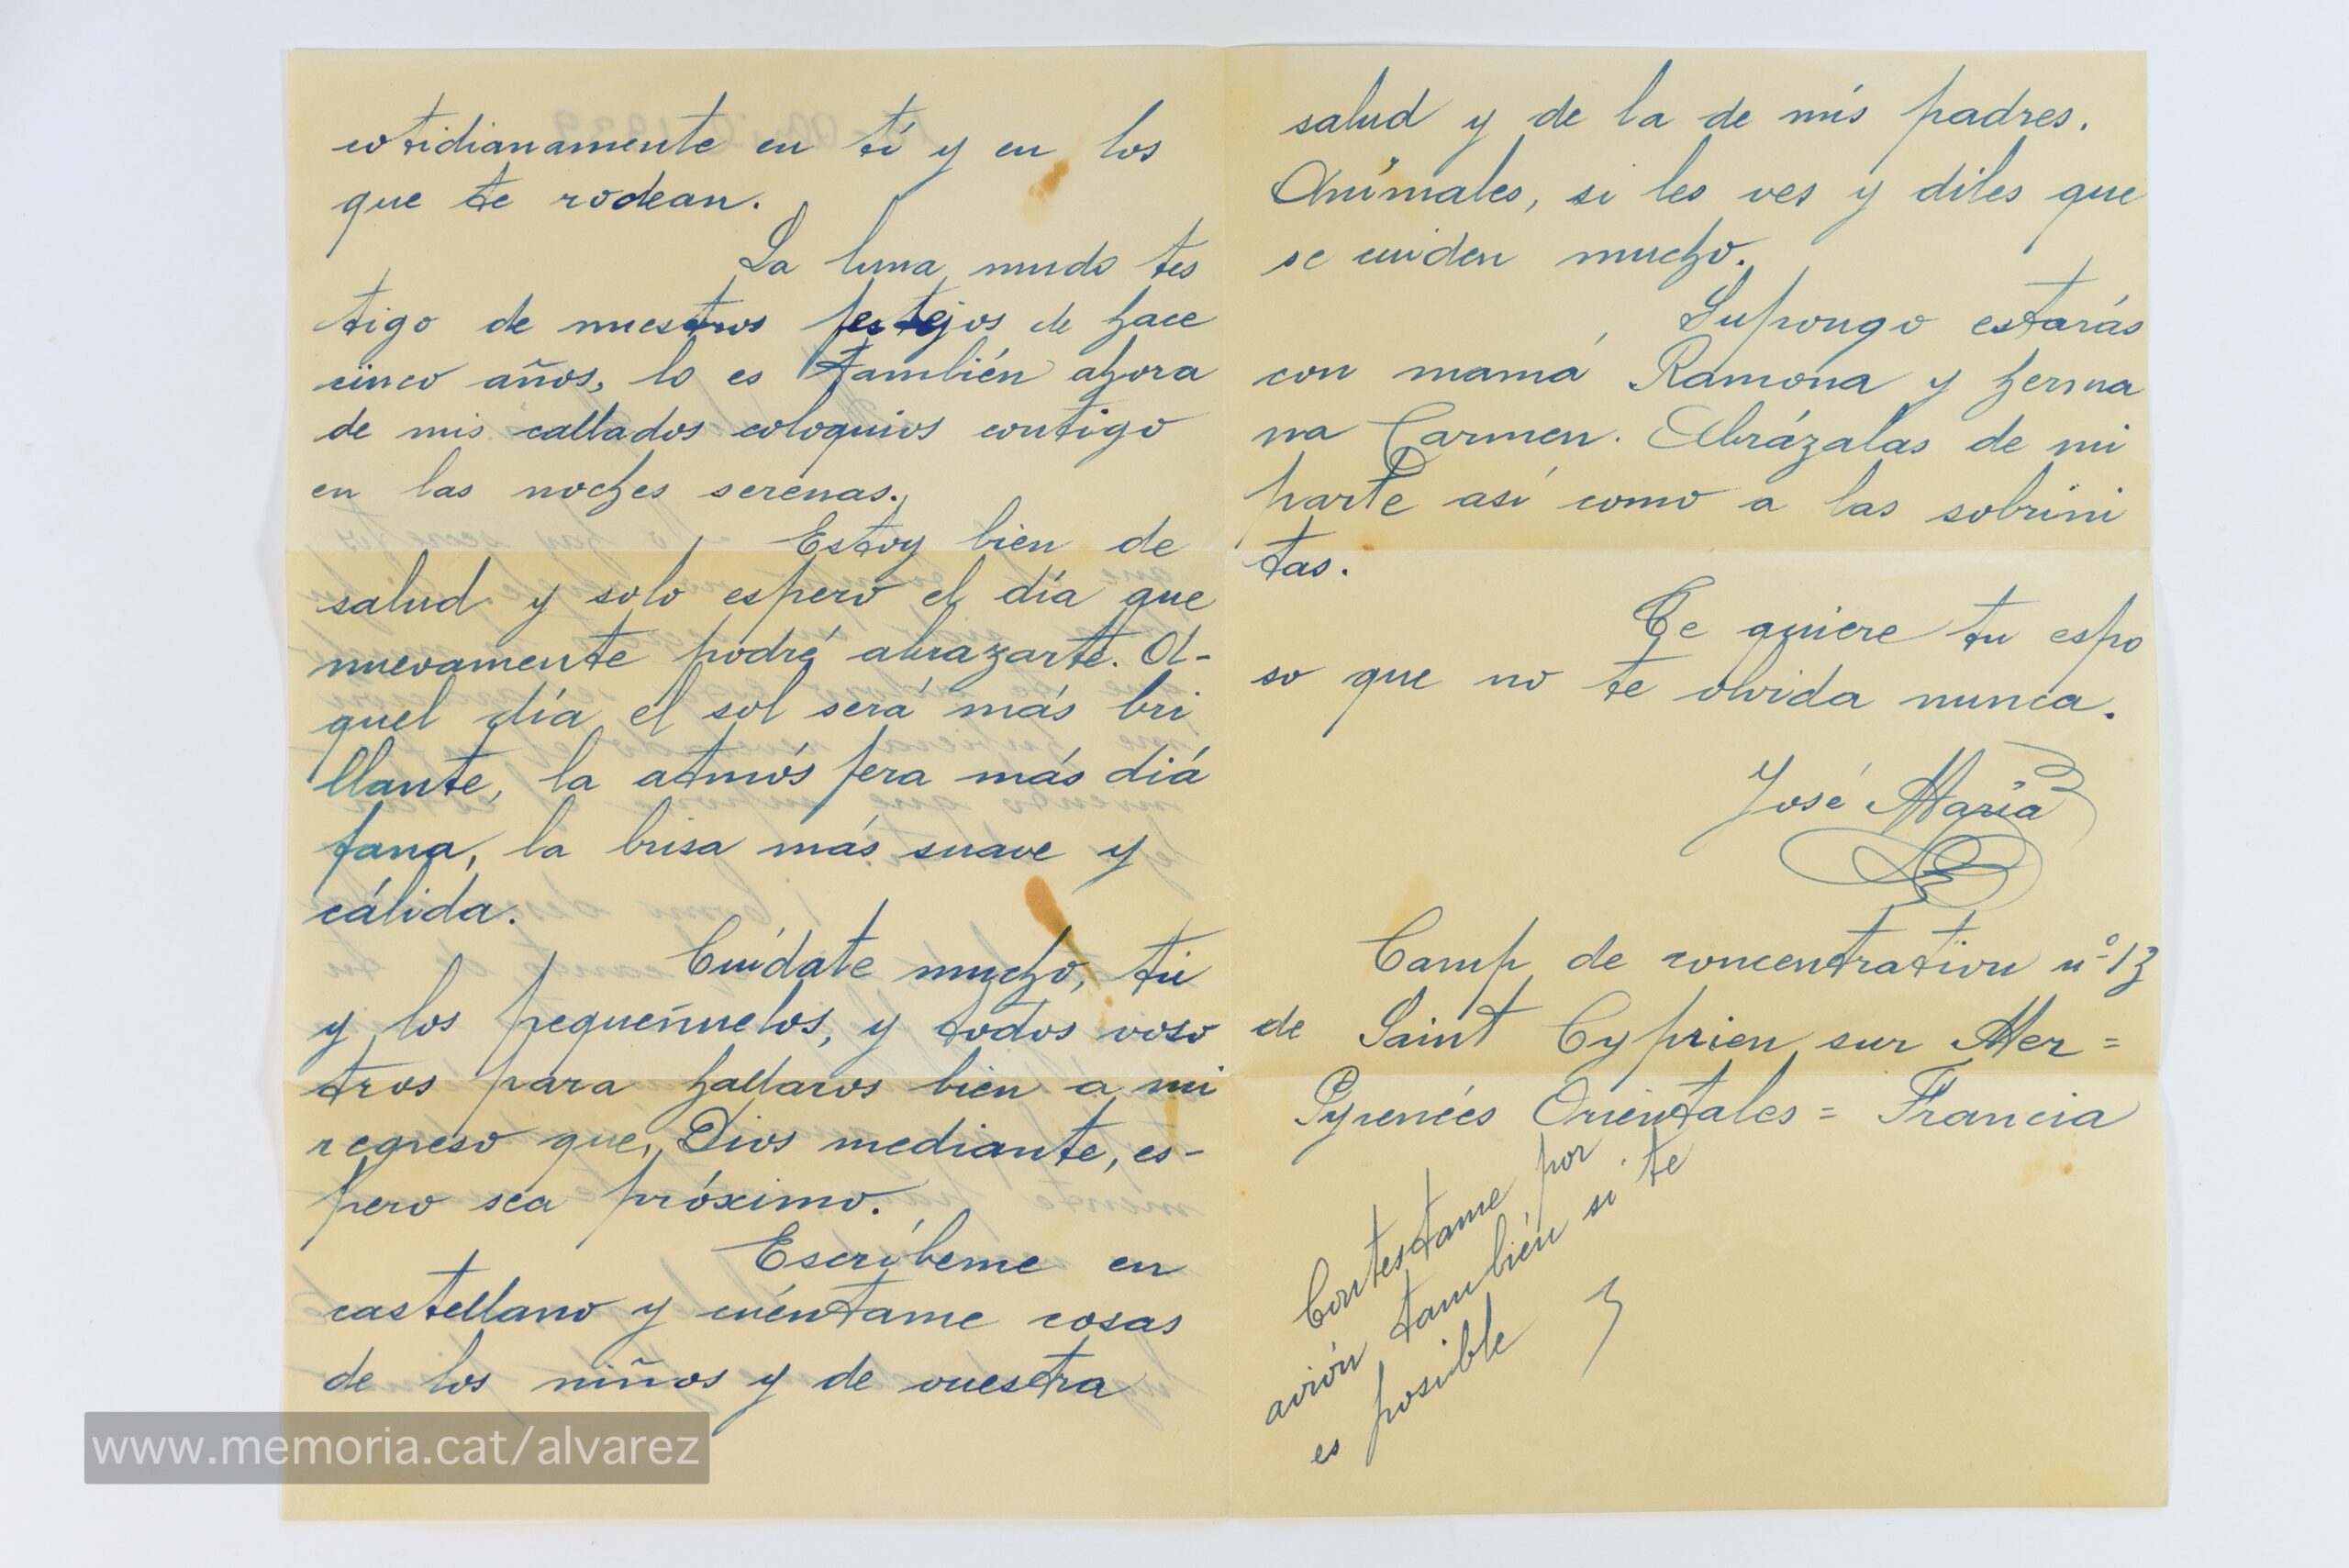 cotidianamente en tí y en los
que te rodean.
La luna, mudo tes
tigo de nuestros festejos de hace
cinco años, lo es también ahora
de mis callados coloquios contigo
en las noches serenas.
Estoy bien de
salud y solo espero el día que
nuevamente podré abrazarte. A-
quel día el sol será más bri
llante, la atmósfera más diá
fana, la brisa más suave y
cálida.
Cuídate mucho, tú
y los pequeñuelos, y todos voso
tros para hallaros bien a mi
regreso que, Dios mediante, es-
pero sea próximo.
Escríbeme en
castellano y cuéntame cosas
de los niños y de vuestra
salud y de la de mis padres.
Anímales, si les ves y diles que
se cuiden mucho.
Supongo estarás
con mamá Ramona y herma
na Carmen. Abrázalas de mi
parte así como a las sobrini
tas.
Te quiere tu espo
so que no te olvida nunca.
José María
Camp de concentration nº 13
de Saint Cyprien sur Mer =
Pyreneés Orientales = Francia
Contestame por
avión también si te
es posible
www.memoria.cat/alvarez